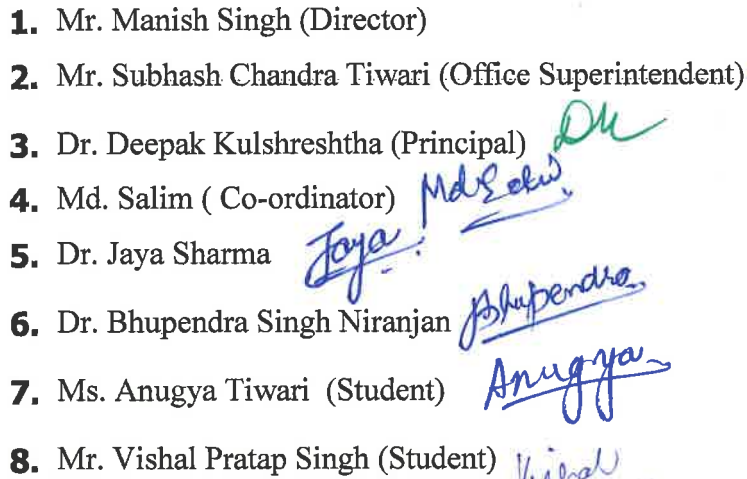 1. Mr. Manish Singh (Director)
2. Mr. Subhash Chandra Tiwari (Office Superintendent)
3. Dr. Deepak Kulshreshtha (Principal)
4. Md. Salim ( Co-ordinator) Md
5. Dr. Jaya Sharma Jaya
6. Dr. Bhupendra Singh Niranjan Bhupendra
7. Ms. Anugya Tiwari (Student) Anugya
8. Mr. Vishal Pratap Singh (Student) Vishal